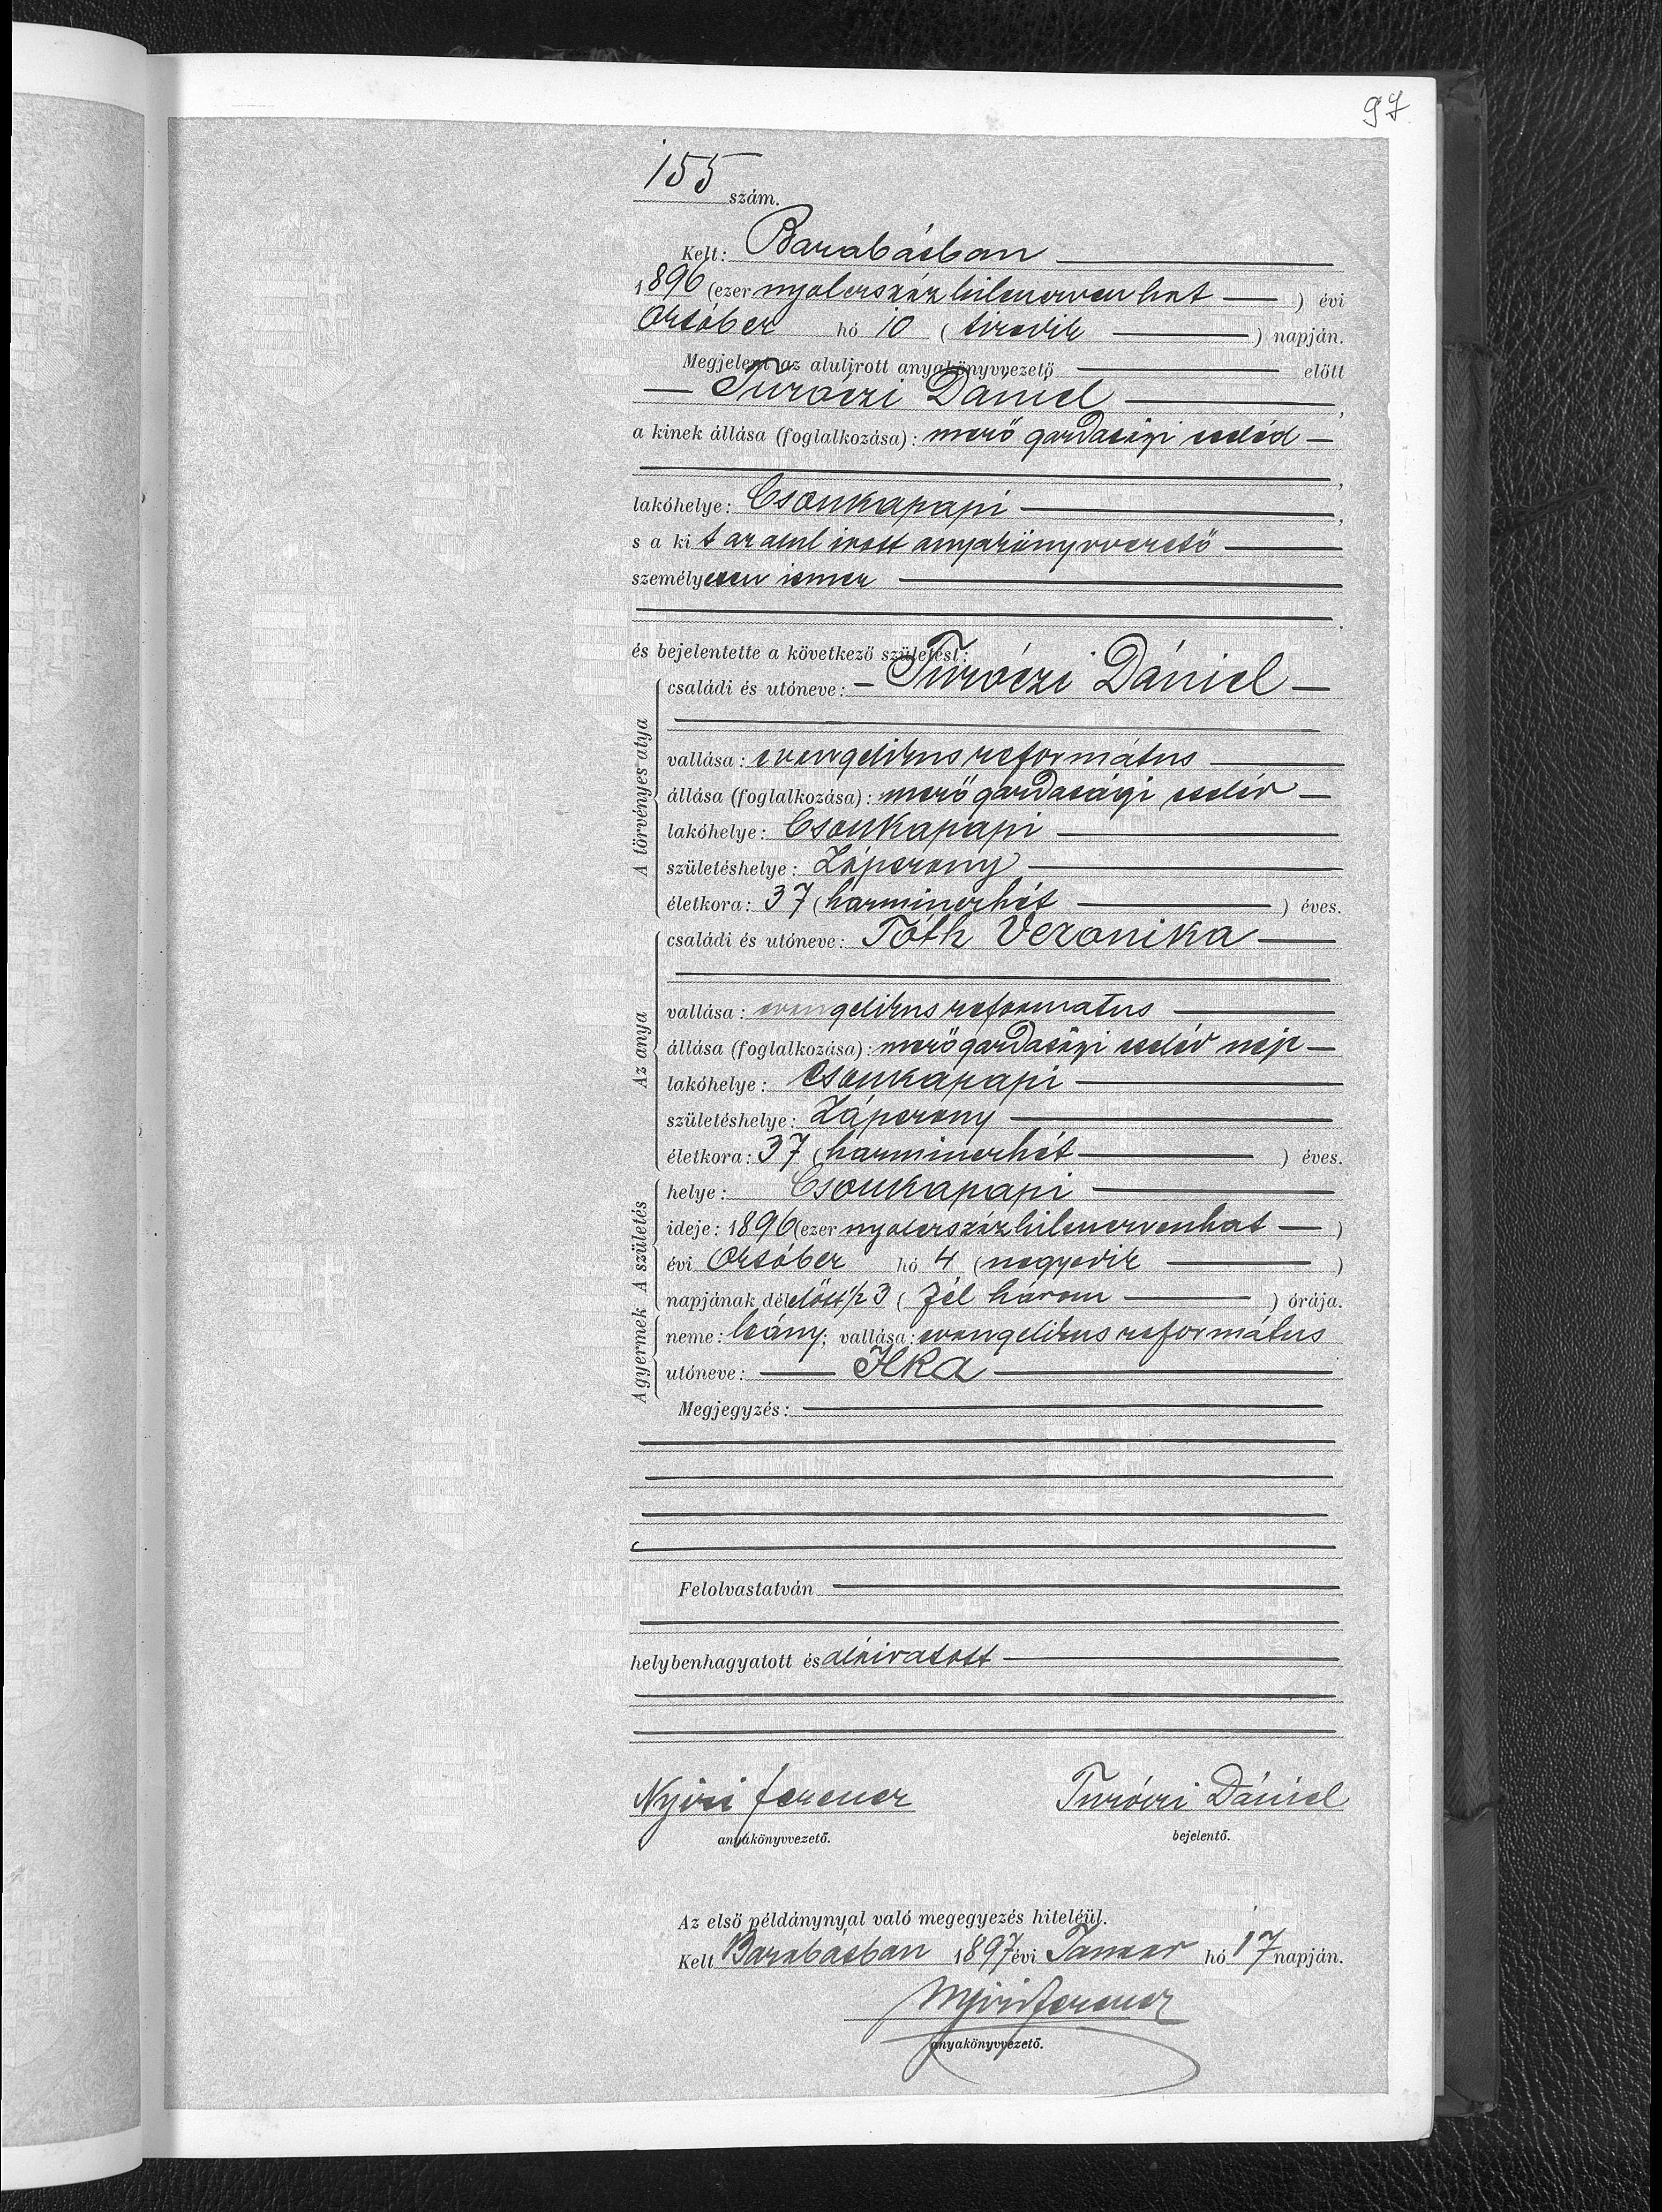 97
155 szám.
Kelt: Barabásban
1896 (ezer nyolcszázkilencvenhat) évi
Október hó 10 (tizedik) napján.
Megjelent az alulirott anyakönyvvezető előtt
Turóczi Dániel,
a kinek állása (foglalkozása): mező gazdasági cseléd
lakóhelye: Csonkapapi,
s a kit az alul irott anyakönyvvezető
személyesen ismer
és bejelentette a következő születést:
A törvényes atya
családi és utóneve: Turóczi Dániel
vallása: evangelikus református
állása (foglalkozása): mező gazdasági cseléd
lakóhelye: Csonkapapi
születéshelye: Záperony
életkora: 37 (harminczhét) éves.
Az anya
családi és utóneve: Tóth Veronika
vallása: evangelikus reformatus
állása (foglalkozása): mező gazdasági cseléd neje
lakóhelye: Csonkapapi
születéshelye: Záperony
életkora: 37 (harminczhét) éves.
A születés
helye: Csonkapapi
ideje: 1896 (ezer nyolcszázkilencvenhat)
évi Október hó 4 (negyedik)
napjának délelőtt 1/2 3 (fél három) órája.
A gyermek
neme: leány; vallása: evangelikus református
utóneve: Ilka
Megjegyzés:
Felolvastatván
helybenhagyatott és aláiratott
Nyiri Ferencz Turóczi Dániel
anyakönyvvezető. bejelentő.
Az első példánynyal való megegyezés hiteléül.
Kelt Barabásban 1897 évi Januar hó 17 napján.
Nyiri Ferencz
anyakönyvvezető.